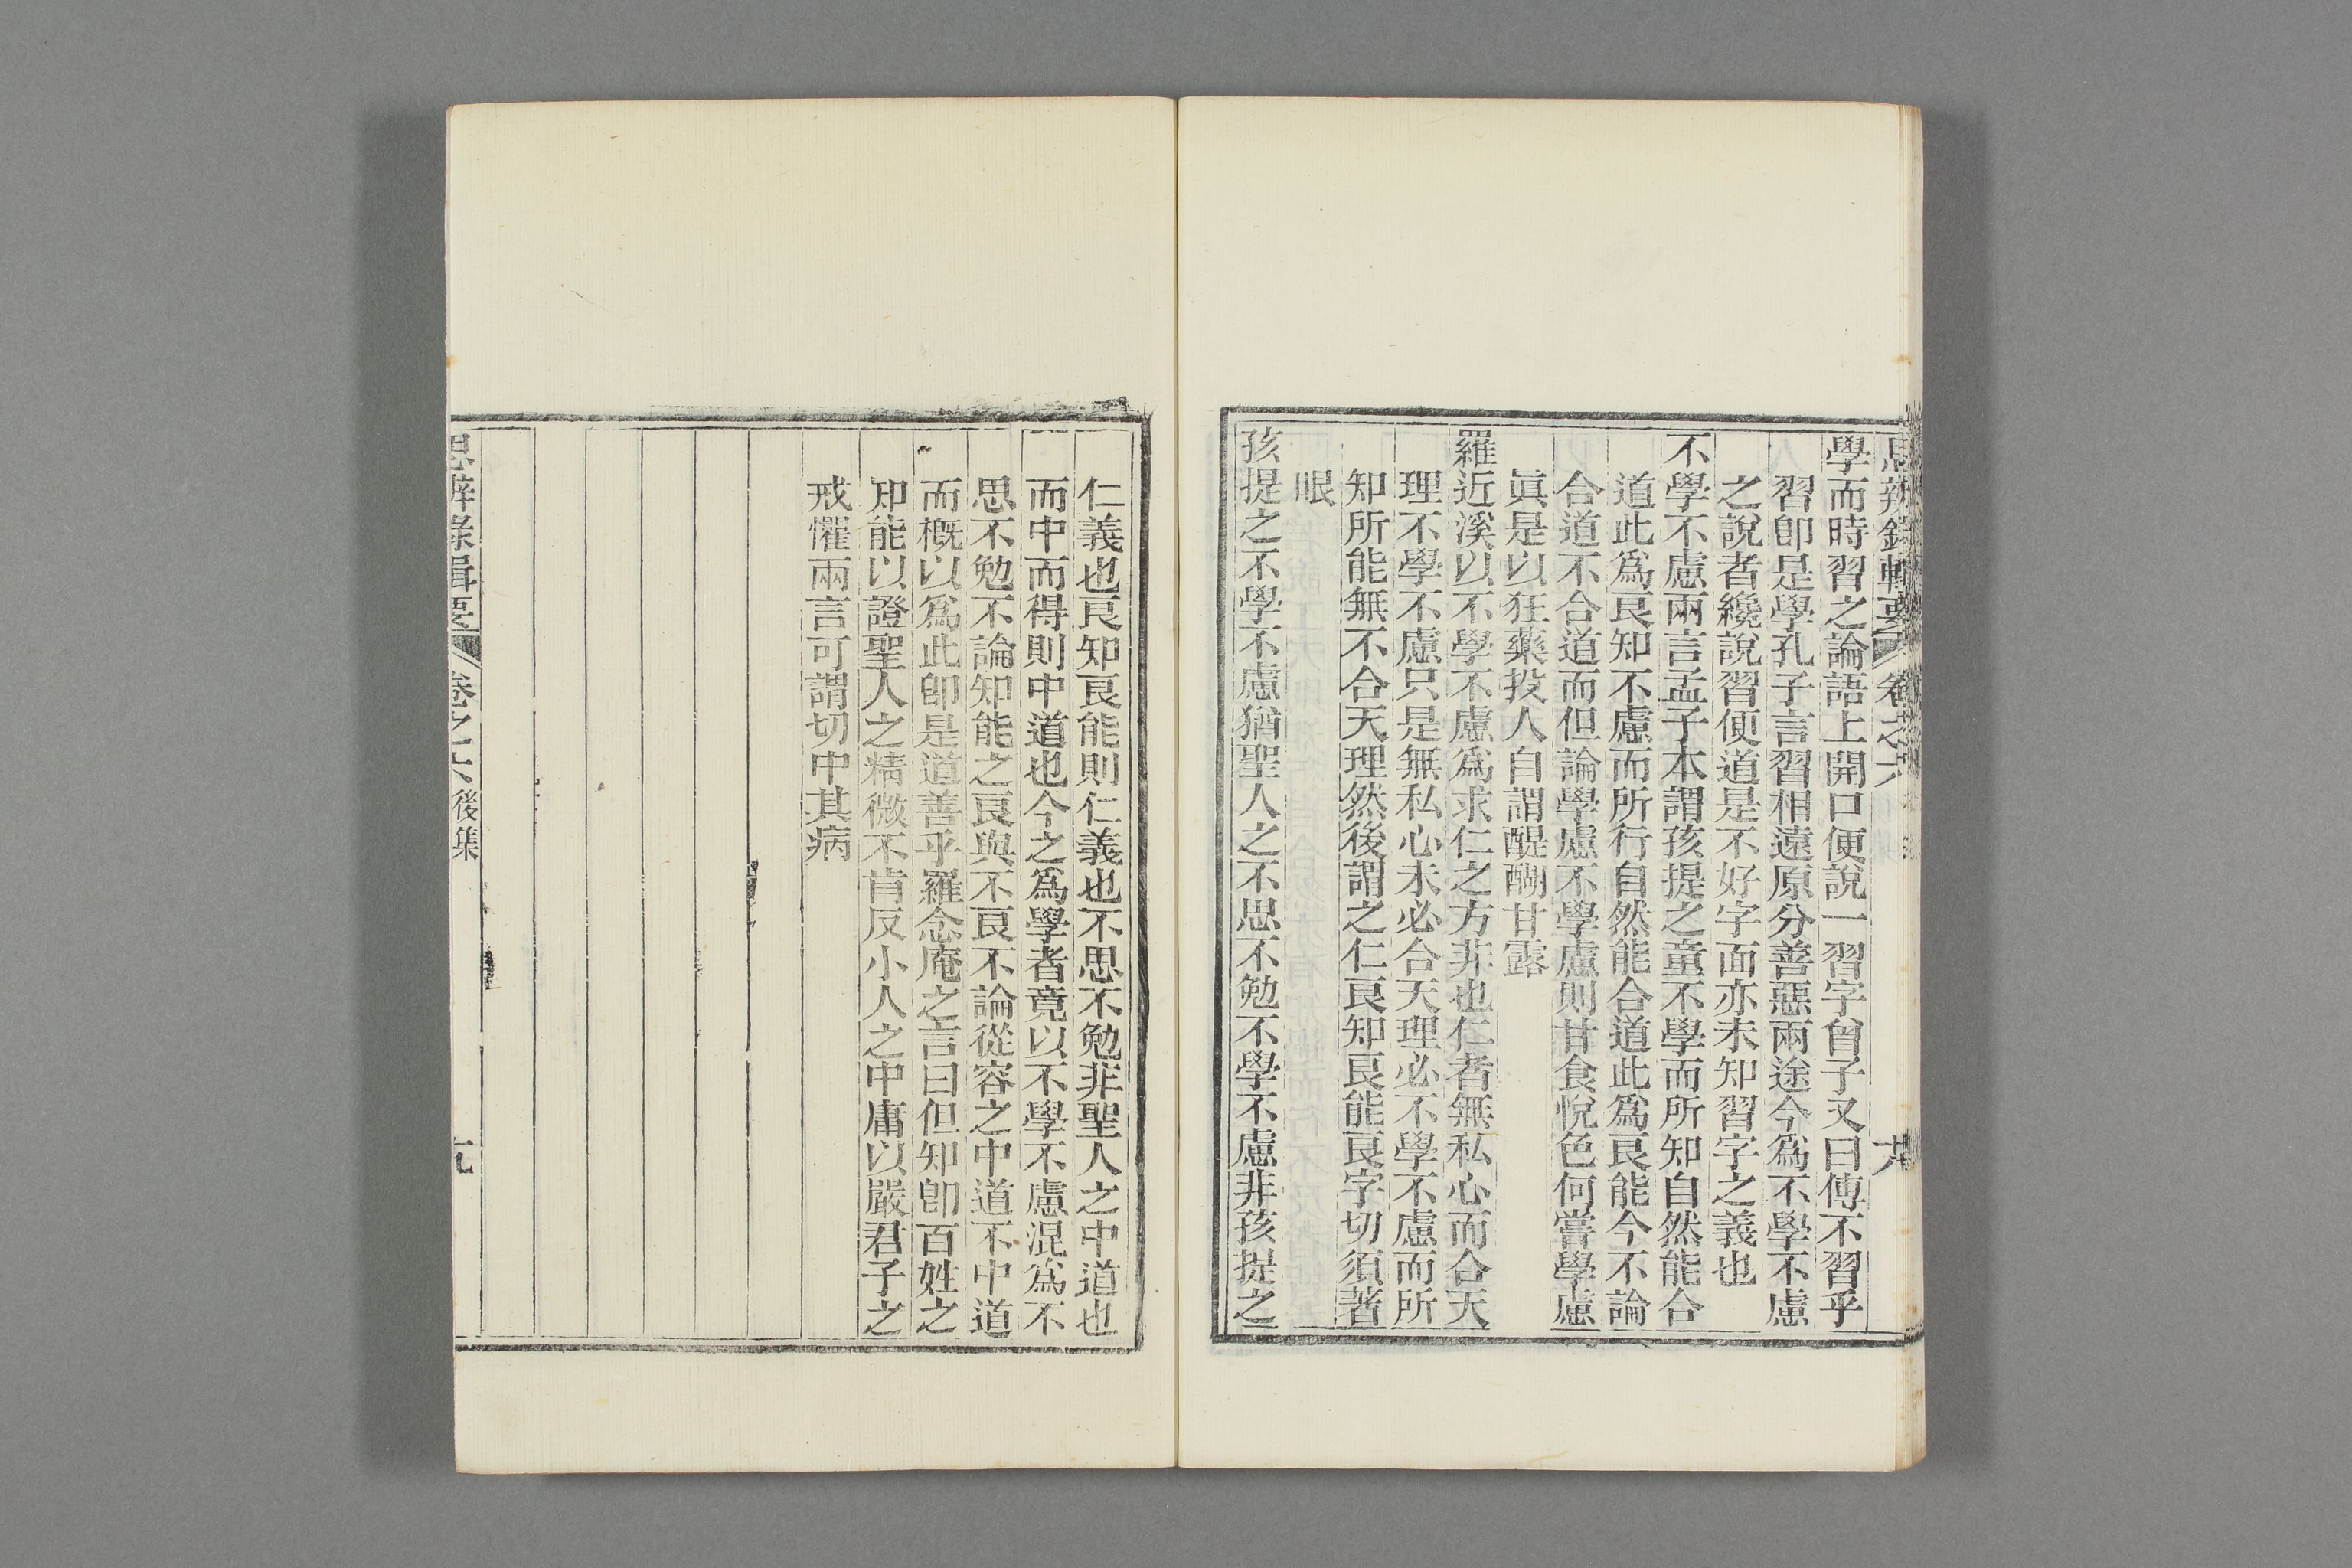 思辨錄輯要
卷之六
學而時習之論語上開口便說一習字曾子又曰傳不習乎
習卽是學孔子言習相遠原分善惡兩途今爲不學不慮
之說者纔說習便道是不好字面亦未知習字之義也
不學不慮兩言孟子本謂孩提之童不學而所知自然能合
道此爲良知不慮而所行自然能合道此爲良能今不論
合道不合道而但論學慮不學慮則甘食悅色何嘗學慮
眞是以狂藥投人自謂醍醐甘露
羅近溪以不學不慮爲求仁之方非也仁者無私心而合天
理不學不慮只是無私心未必合天理必不學不慮而所
知所能無不合天理然後謂之仁良知良能良字切須著
眼
孩提之不學不慮猶聖人之不思不勉不學不慮非孩提之
仁義也良知良能則仁義也不思不勉非聖人之中道也
而中而得則中道也今之爲學者竟以不學不慮混爲不
思不勉不論知能之良與不良不論從容之中道不中道
而槪以爲此卽是道善乎羅念庵之言曰但知卽百姓之
知能以證聖人之精微不肯反小人之中庸以嚴君子之
戒懼兩言可謂切中其病
思辨錄輯要
卷之六
後集